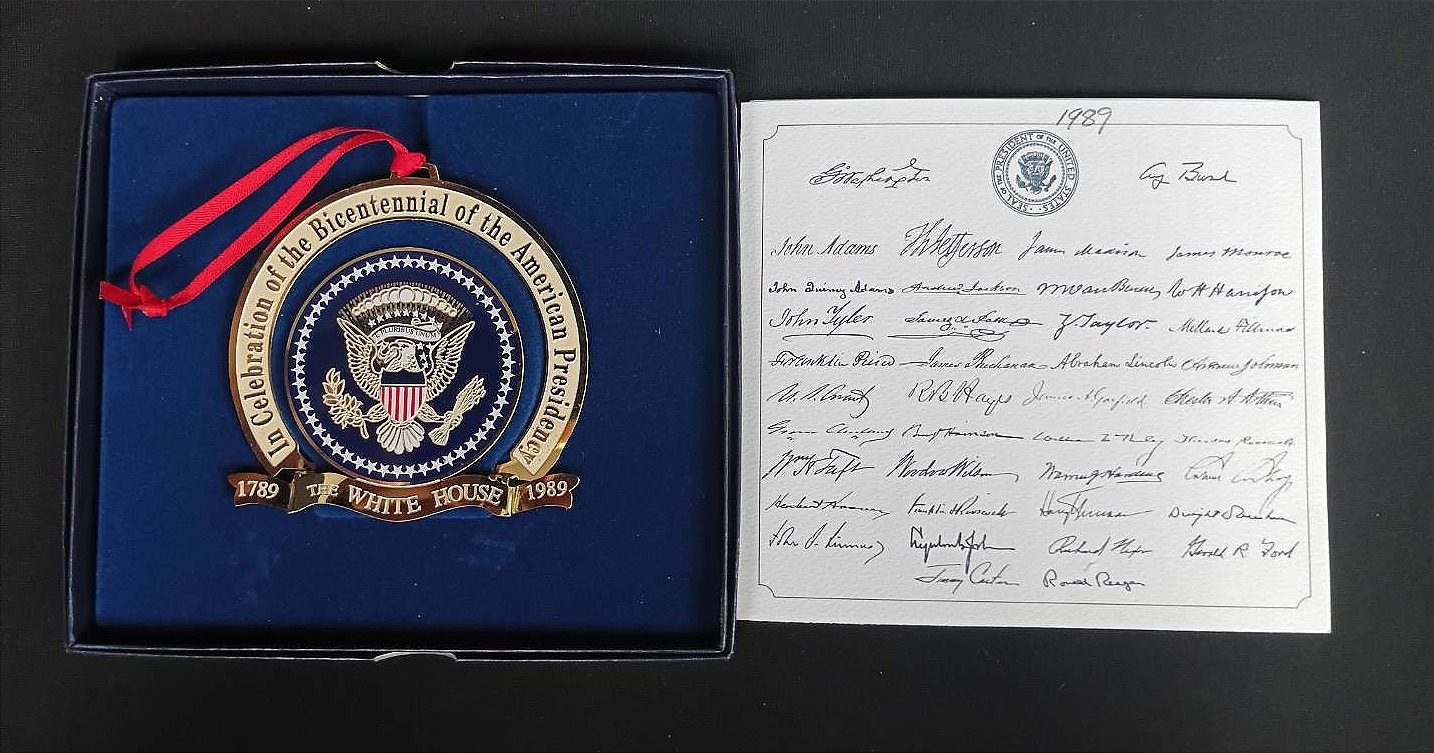 In Celebration of the Bicentennial of the American Presidency
E PLURIBUS UNUM
1789 THE WHITE HOUSE 1989
1989
SEAL OF THE PRESIDENT OF THE UNITED STATES
G Washington
G Bush
John Adams Th Jefferson James Madison James Monroe
John Quincy Adams Andrew Jackson M Van Buren W H Harrison
John Tyler James K Polk Z Taylor. Millard Fillmore
Franklin Pierce James Buchanan Abraham Lincoln Andrew Johnson
U. S. Grant R B Hayes James A Garfield Chester A Arthur
Grover Cleveland Benj Harrison William McKinley Theodore Roosevelt
Wm H Taft Woodrow Wilson Warren G Harding Calvin Coolidge
Herbert Hoover Franklin D Roosevelt Harry Truman Dwight D Eisenhower
John F. Kennedy Lyndon B Johnson Richard Nixon Gerald R. Ford
Jimmy Carter Ronald Reagan